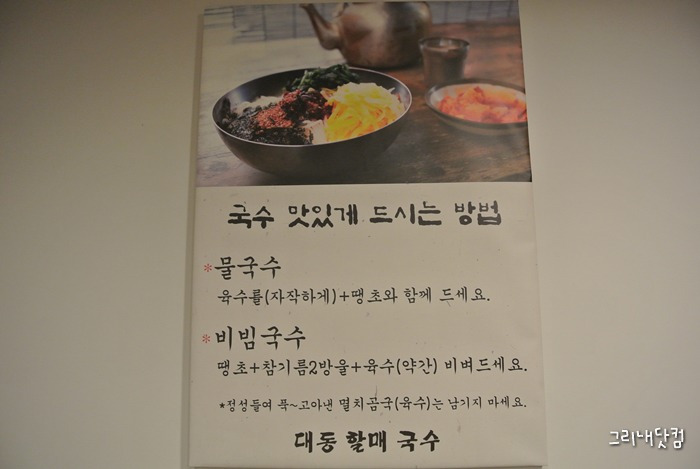 국수 맛있게 드시는 방법
*물국수
육수를(자작하게)+땡초와 함께 드세요.
*비빔국수
땡초+참기름2방울+육수(약간) 비벼드세요.
*정성들여 푹~고아낸 멸치곰국(육수)는 남기지 마세요.
대동 할매 국수
그리내닷컴